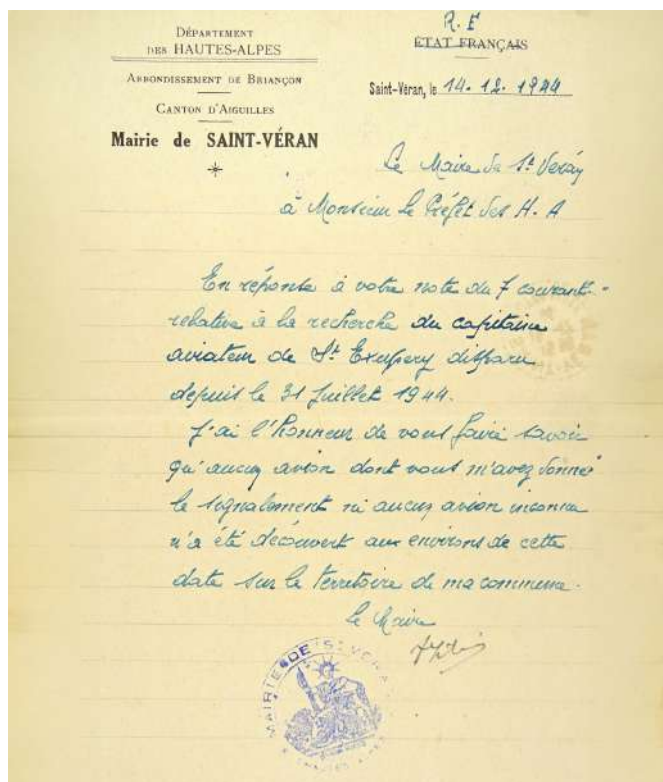 DÉPARTEMENT
DES HAUTES-ALPES
ARRONDISSEMENT DE BRIANÇON
CANTON D'AIGUILLES
Mairie de SAINT-VÉRAN
R.F
ÉTAT FRANÇAIS
Saint-Véran, le 14.12.1944
Le Maire de St Véran
à Monsieur le Préfet des H.A
En réponse à votre note du 7 courant
relative à la recherche du capitaine
aviateur de St Exupery disparu
depuis le 31 Juillet 1944.
J'ai l'honneur de vous faire savoir
qu'aucun avion dont vous m'avez donné
le signalement ni aucun avion inconnu
n'a été découvert aux environs de cette
date sur le territoire de ma commune.
le Maire
MAIRIE DE ST VÉRAN